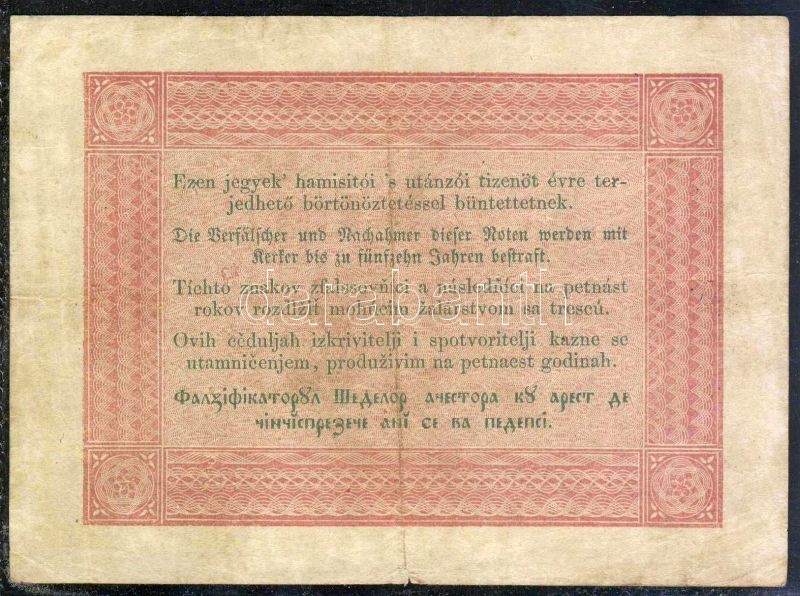 Ezen jegyek' hamisitói 's utánzói tizenöt évre ter-
jedhető börtönöztetéssel büntettetnek.
Die Verfälscher und Nachahmer dieser Noten werden mit
Kerker bis zu fünfzehn Jahren bestraft.
Tíchto znakov zfalšovňíci a následiúci na petnást
rokov rozdižit mohúcim žalárstvom sa trescú.
darabanth
Ovih cěduljah izkrivitelji i spotvoritelji kazne se
utamničenjem, produživim na petnaest godinah.
Фалꙁіфікаторꙋл Шеделор ачестора кꙋ арест де
чінчіспреꙁече ані се ва педепсі.